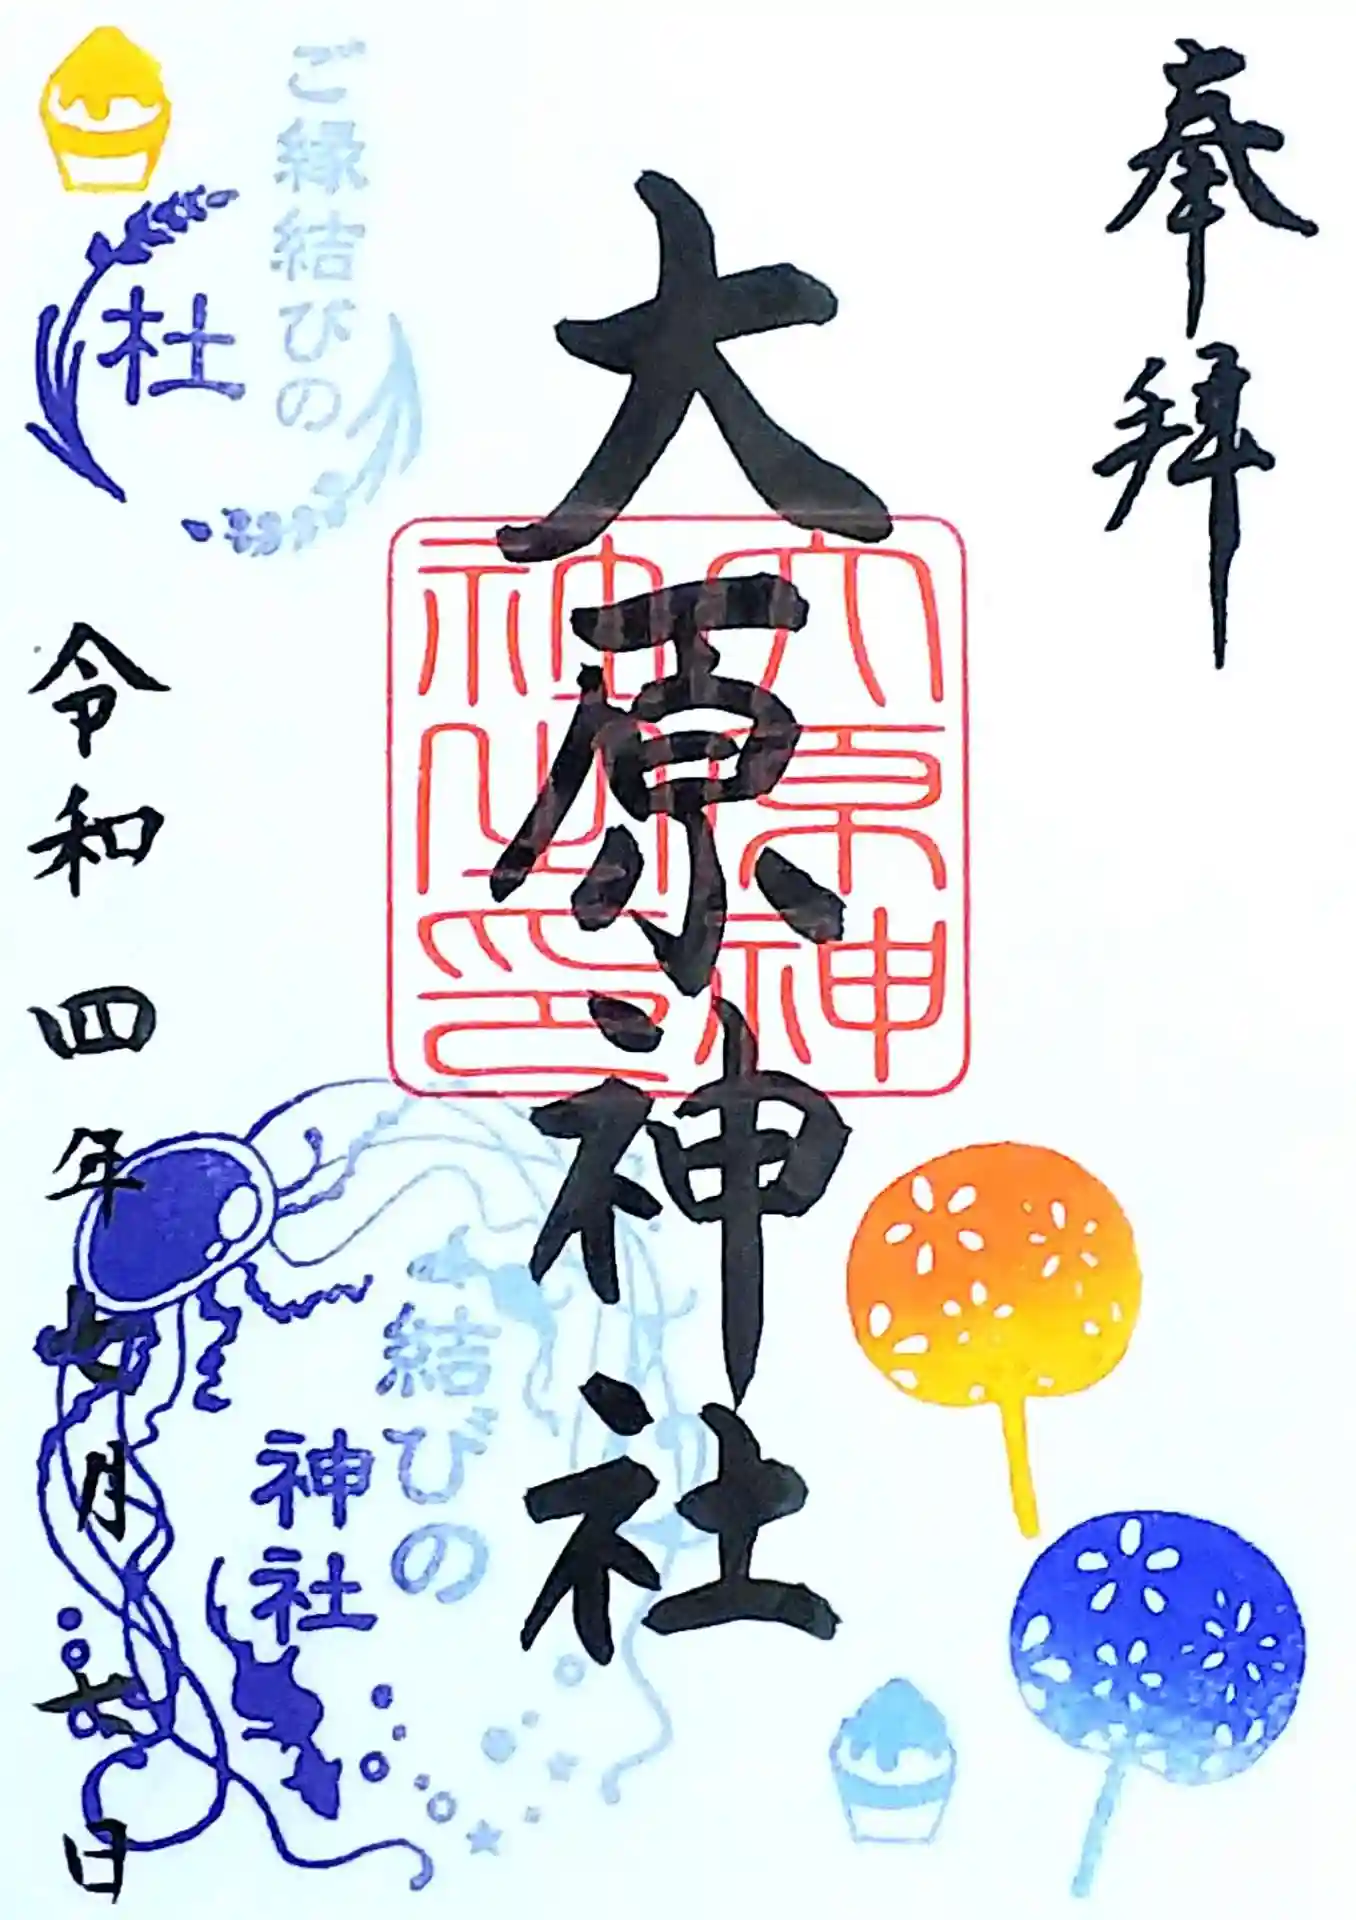 奉拝
大原神社
大原神
社之印
ご縁結びの
杜
結びの
神社
令和四年七月七日